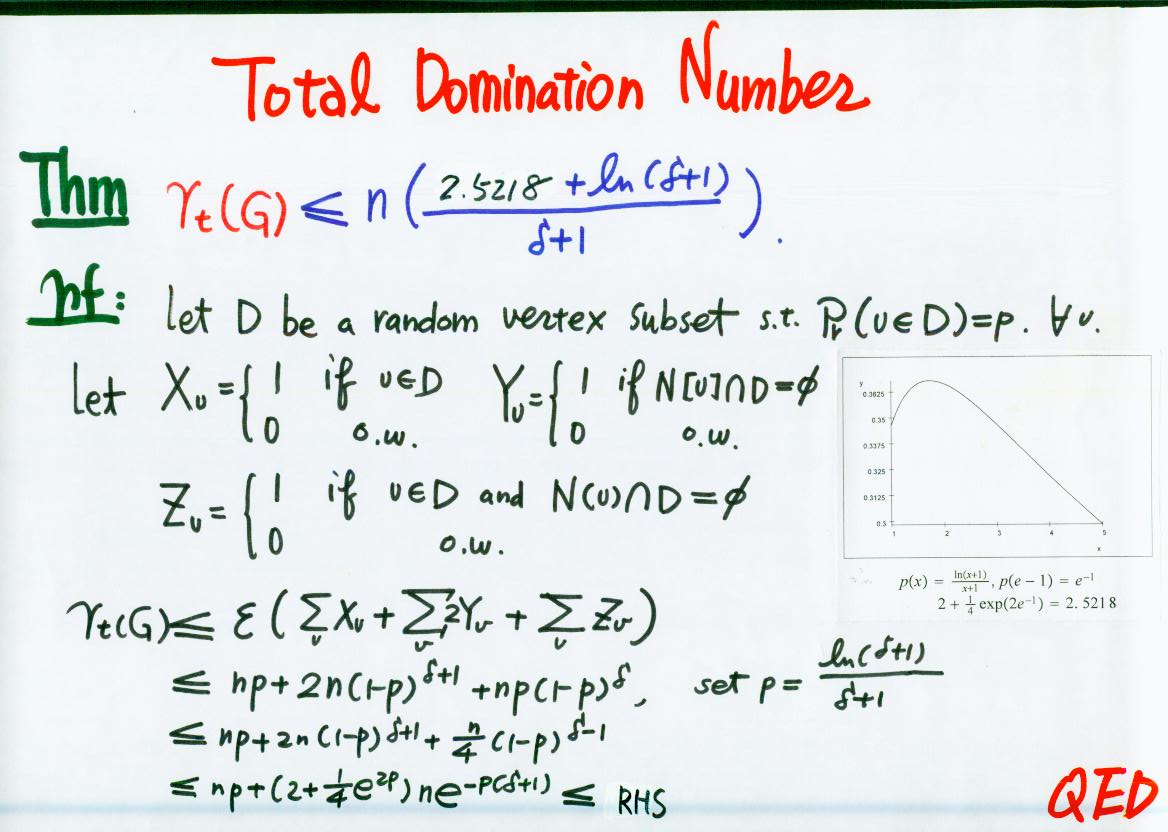 Total Domination Number
Thm γt(G) ≤ n ( (2.5218 + ln(δ+1)) / (δ+1) ).
pf: let D be a random vertex subset s.t. Pr(v∈D)=p. ∀v.
let Xv = { 1 if v∈D Yv = { 1 if N[v]∩D=ϕ
0 o.w. 0 o.w.
Zv = { 1 if v∈D and N(v)∩D=ϕ
0 o.w.
y
0.3625
0.35
0.3375
0.325
0.3125
0.3
1 2 3 4 5
x
p(x) = ln(x+1)/(x+1), p(e − 1) = e⁻¹
2 + ¼ exp(2e⁻¹) = 2.5218
γt(G) ≤ ε ( Σv Xv + Σv 2Yv + Σv Zv )
≤ np + 2n(1-p)^(δ+1) + np(1-p)^δ, set p = ln(δ+1)/(δ+1)
≤ np + 2n(1-p)^(δ+1) + n/4 (1-p)^(δ-1)
≤ np + (2 + ¼e^(2p)) n e^(-p(δ+1)) ≤ RHS
QED